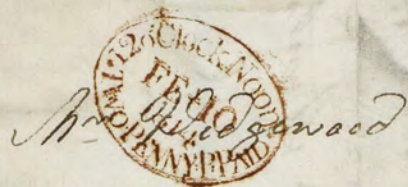 12 o'Clock Noon
FE 10
PENNY P. PAID
Mr Wedgwood